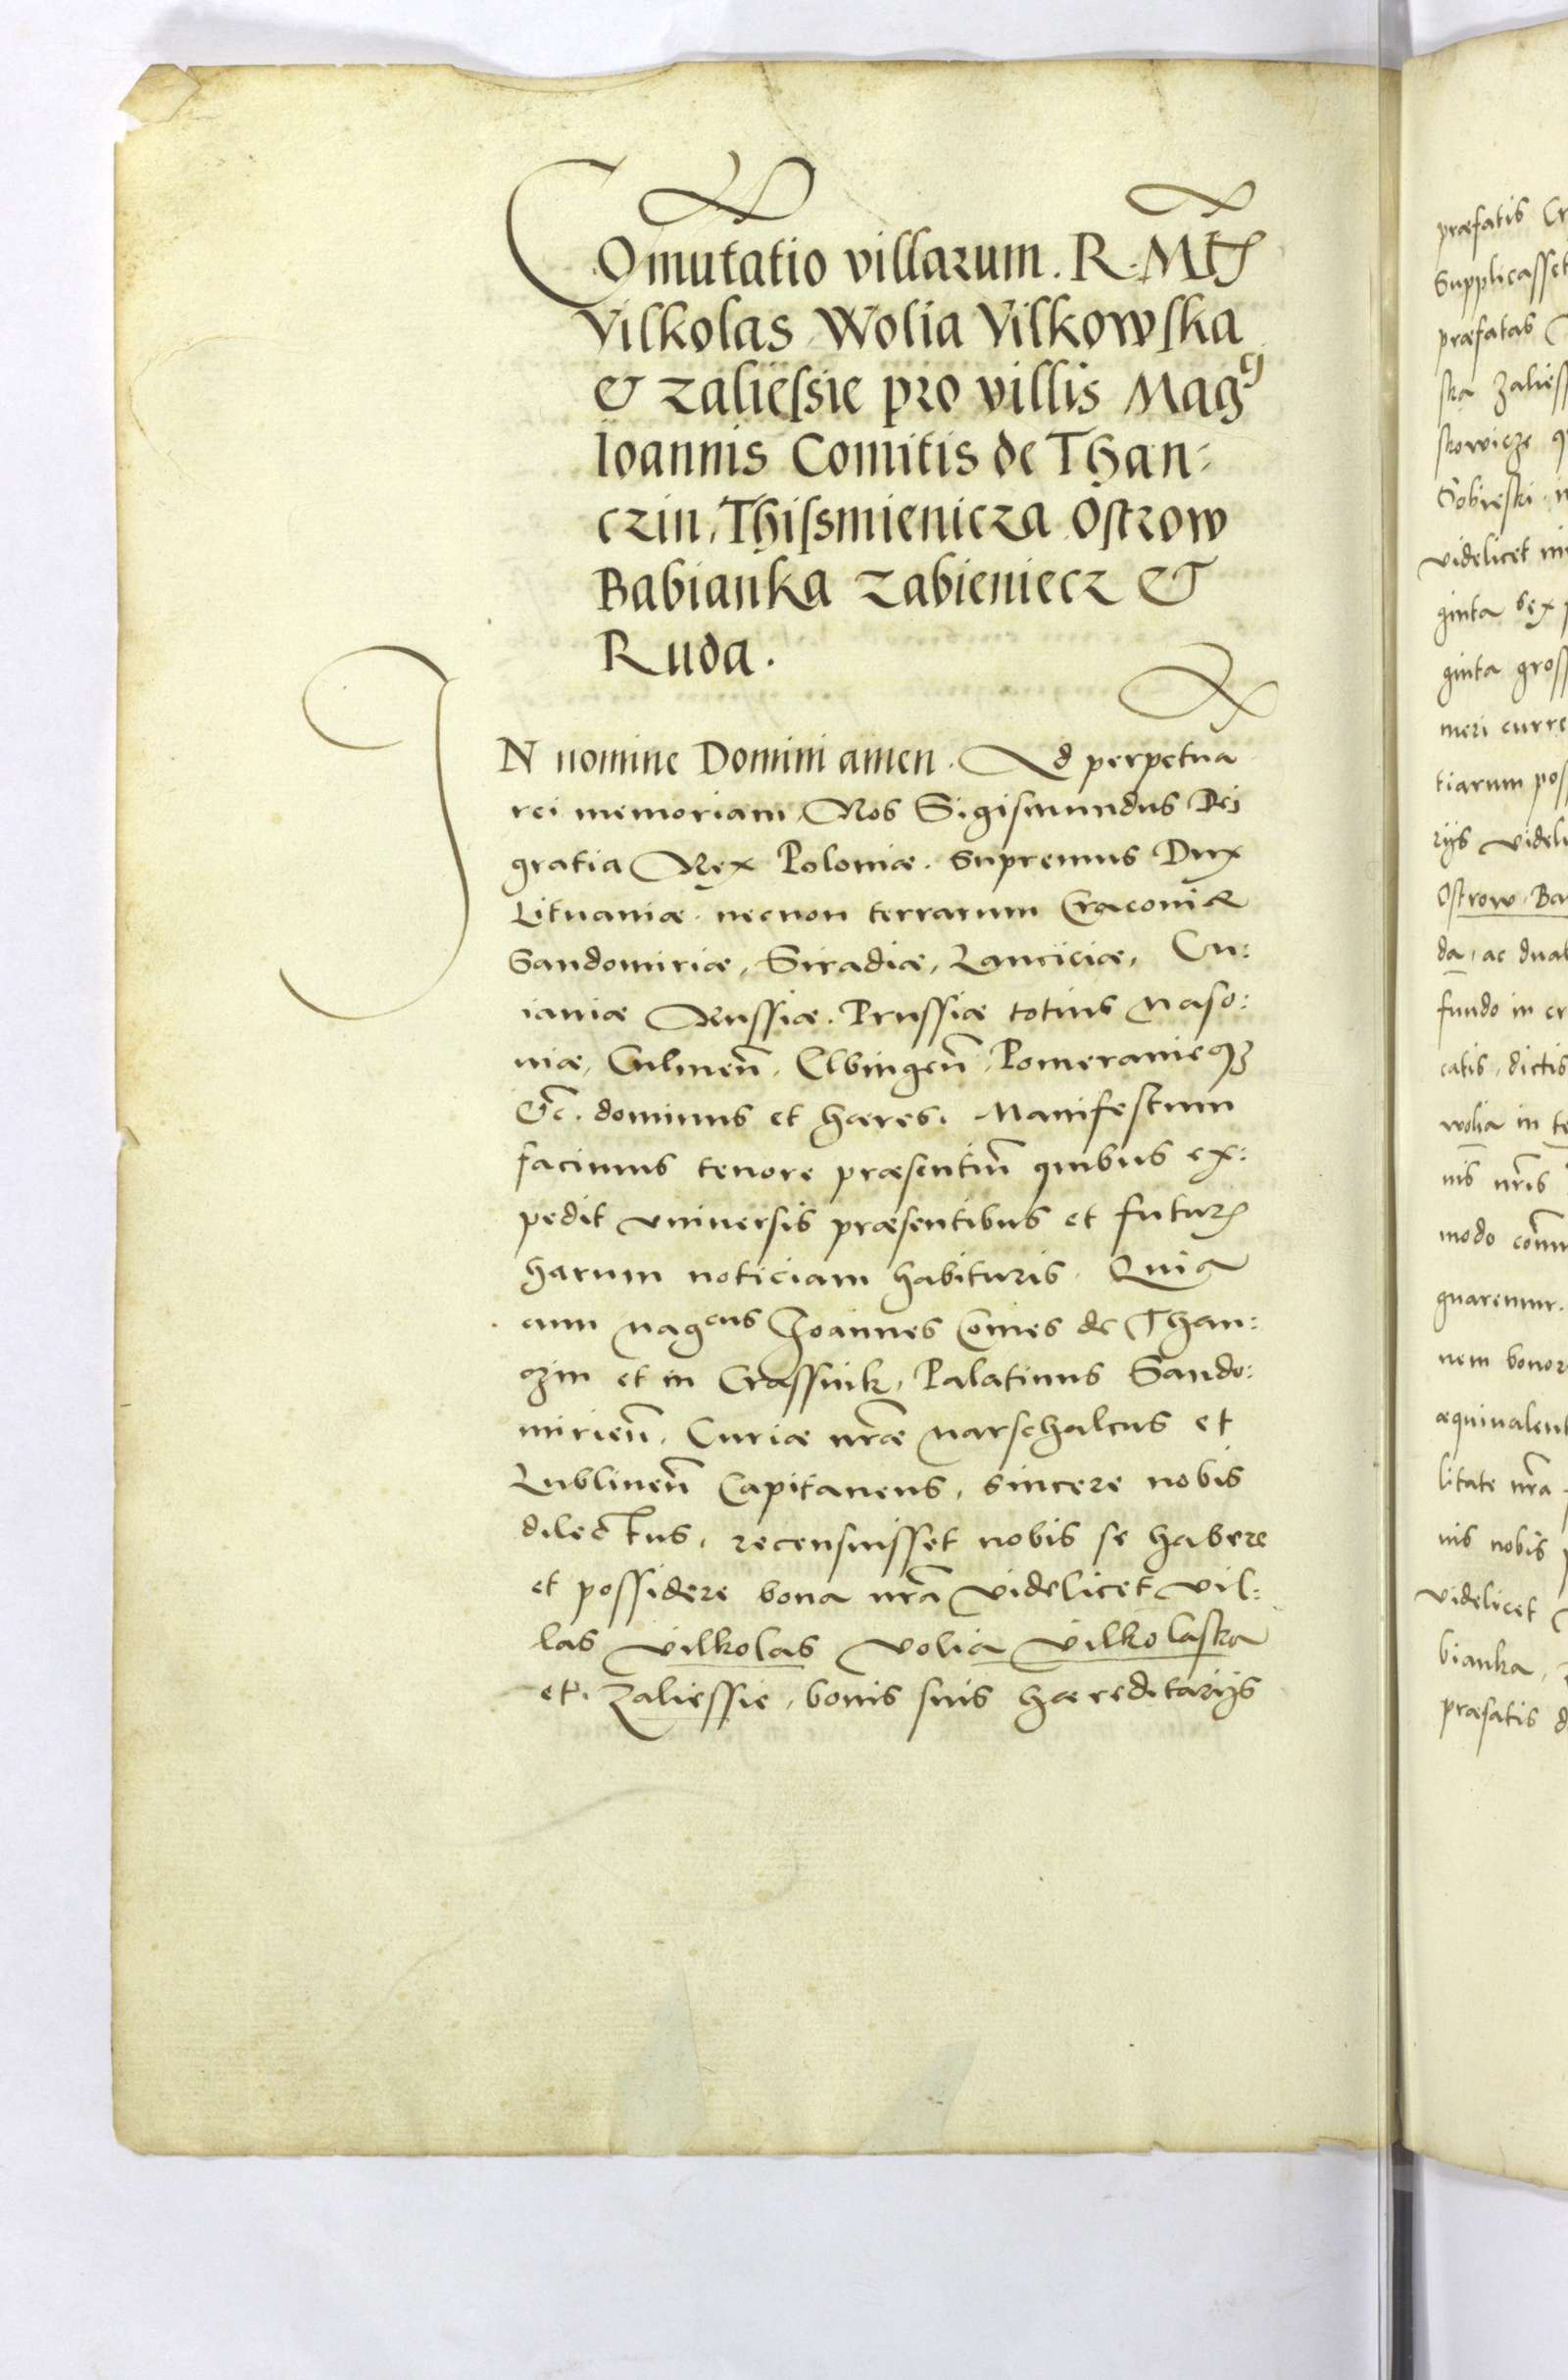 Comutatio villarum. R. Mtis
Vilkolas Wolia Vilkowska
& Zaliessie pro villis Magci
Ioannis Comitis de Than-
czin, Thissmienicza Ostrow
Babianka Zabieniecz &
Ruda.
IN nomine Domini amen. Ad perpetua
rei memoriam, Nos Sigismundus Dei
gratia Rex Poloniæ. supremus Dux
Lituaniæ. necnon terrarum Cracoviæ
Sandomiriæ, Siradiæ, Lanciciæ, Cu:
iaviæ Russiæ. Prussiæ totius Maso:
viæ, Culmeñ. Elbingeñ. Pomeranieq3
&c̃. dominus et hæres. Manifestum
facimus tenore præsentiũ quibus ex:
pedit vniversis præsentibus et futuris
harum noticiam habituris. Quia
cum Magcus Joannes Comes de Than:
czin et in Crassnik, Palatinus Sando:
mirieñ. Curiæ nr̃æ Marschalcus et
Lublineñ Capitaneus, sincere nobis
dilectus, recensuisset nobis se habere
et possidere bona nr̃a videlicet vil:
las Vilkolas Volia Vilkolaska
et. Zaliessie, bonis suis hæreditarijs
præfatis Cr
supplicasset
præfatas
ska Zaliess
skowicze q
Sobieski in
videlicet
ginta sex
ginta gross
meri curre
tiarum pos
rijs videli
Ostrow Ba
da, ac dual
fundo in cr
catis, dictis
wolia in te
nis nr̃is
modo com̃
gnaremur.
nem bonor
æquivalent
litate nr̃a
nis nobis
videlicet
bianka,
præfatis d